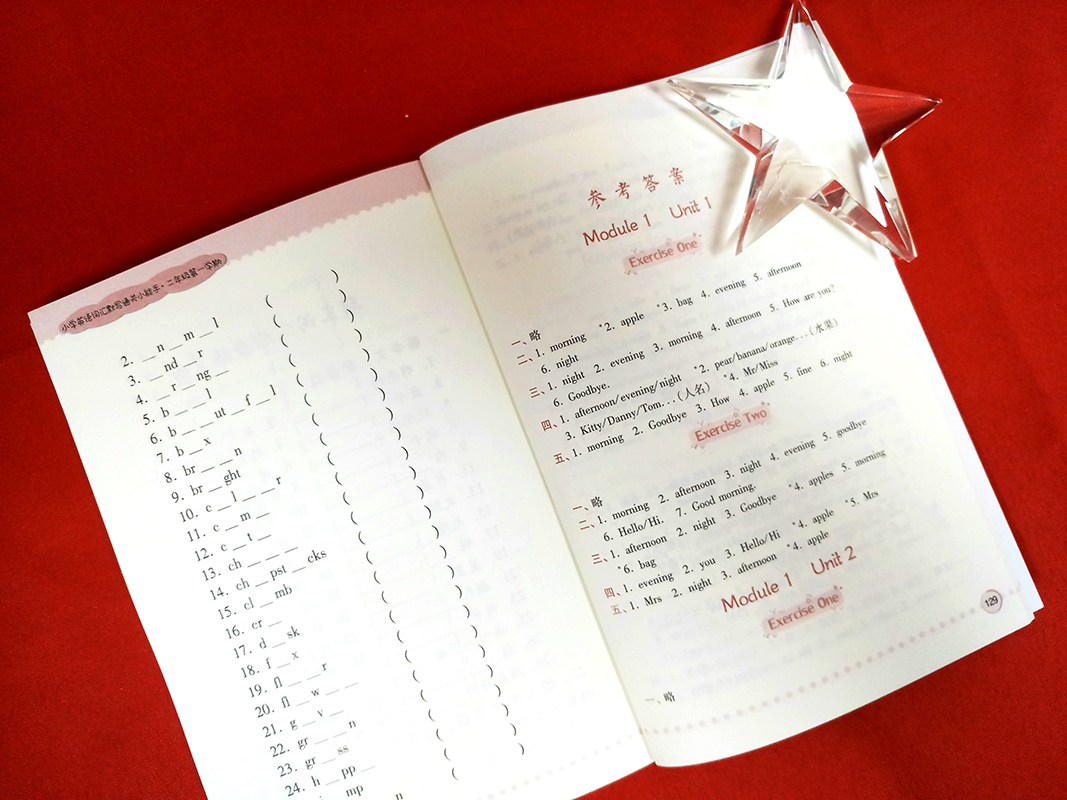 小学英语词汇默写通关小能手·二年级第一学期
2. __n __m __l ( )
3. __nd __r ( )
4. __r __ng __ ( )
5. b __ __l ( )
6. b __ __ut __f __l ( )
7. b __x ( )
8. br __ __n ( )
9. br __ght ( )
10. c __l __ __r ( )
11. c __m __ ( )
12. c __t __ ( )
13. ch __ __ __ ( )
14. ch __pst __cks ( )
15. cl __mb ( )
16. cr __ ( )
17. d __sk ( )
18. f __x ( )
19. fl __ __r ( )
20. fl __w __ __ ( )
21. g __v __ ( )
22. gr __ __n ( )
23. gr __ss ( )
24. h __pp __ ( )
参考答案
Module 1 Unit 1
Exercise One
一、略
二、1. morning *2. apple *3. bag 4. evening 5. afternoon
6. night
三、1. night 2. evening 3. morning 4. afternoon 5. How are you?
6. Goodbye.
四、1. afternoon/evening/night *2. pear/banana/orange...(水果)
3. Kitty/Danny/Tom...(人名) *4. Mr/Miss
五、1. morning 2. Goodbye 3. How 4. apple 5. fine 6. night
Exercise Two
一、略
二、1. morning 2. afternoon 3. night 4. evening 5. goodbye
6. Hello/Hi. 7. Good morning.
三、1. afternoon 2. night 3. Goodbye *4. apples 5. morning
*6. bag
四、1. evening 2. you 3. Hello/Hi *4. apple *5. Mrs
五、1. Mrs 2. night 3. afternoon *4. apple
Module 1 Unit 2
Exercise One
一、略
129